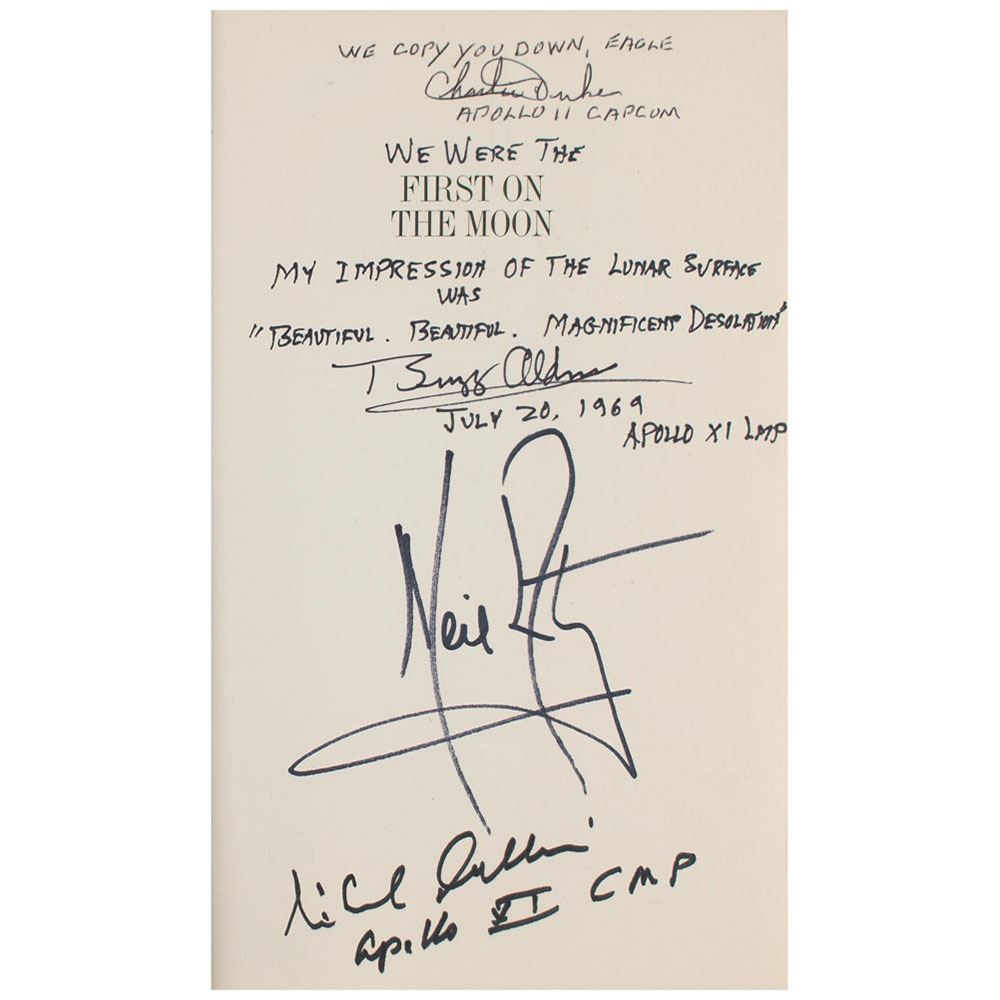 WE COPY YOU DOWN, EAGLE
Charlie Duke
APOLLO 11 CAPCOM
WE WERE THE
FIRST ON
THE MOON
MY IMPRESSION OF THE LUNAR SURFACE
WAS
"BEAUTIFUL. BEAUTIFUL. MAGNIFICENT DESOLATION"
Buzz Aldrin
JULY 20, 1969
APOLLO XI LMP
Neil
Michael Collins
Apollo XI CMP